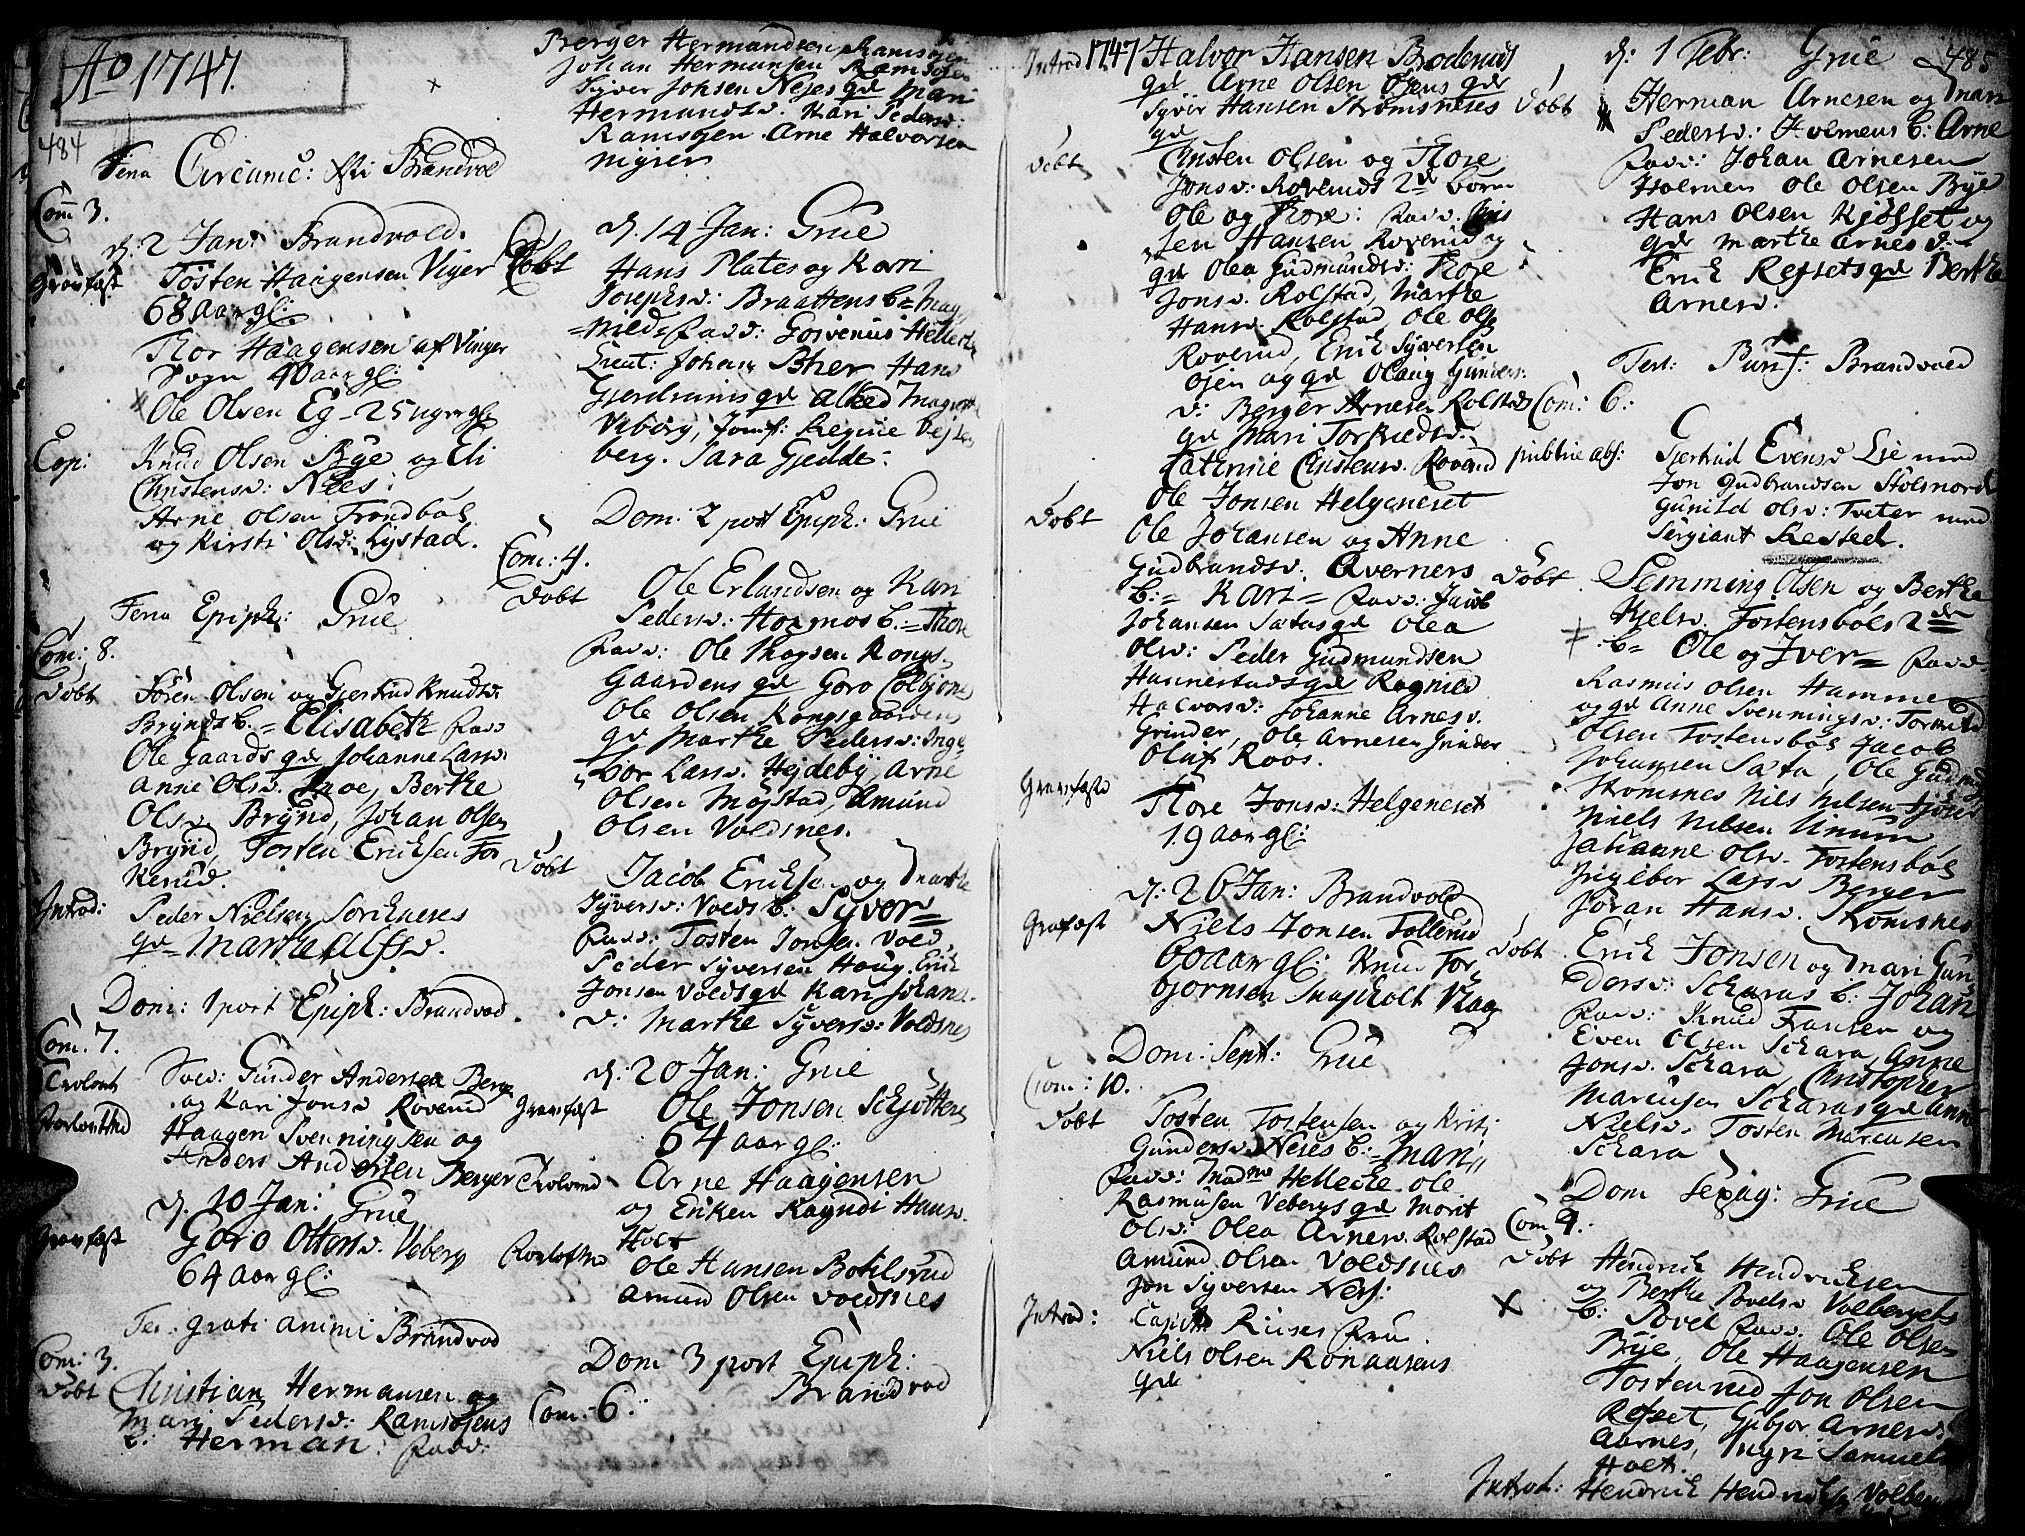 Ao 1747.
484
Feria Circumc: Xsti Brandvold
Com 3.
d. 2 Jan: Brandvold.
Gravfæst Tosten Haagensen Viger
68 Aar gl:
Thor Haagensen af Vinger
Sogn 40 aar gl:
Ole Olsen Eg - 25 uger gl:
Cop: Knud Olsen Bye og Eli
Christensd: Nees:
Arne Olsen Trondbøl
og Kirsti Olsd: Lystad.
Feria Epiph: Grue
Com: 8.
Døbt Søren Olsen og Giertrud Knudsd:
Brynds b: = Elisabeth Fadd:
Ole Gaards qd Johanne Larsd.
Anne Olsd. Berthe
Olsd. Brynd, Johan Olsen
Brynd, Tosten Ericksen Tor
kerud.
Introd: Peder Nielsen
qd = Marthe Alfsd.
Dom: 1 post Epiph: Brandvod
Com. 7.
Trolovt Sold: Gunder Andersen Berger
og Kari Jonsd Roverud
Forlovtnd Haagen Svenningsen og
Anders Andersen Berger
d. 10 Jan: Grue
Gravfæst Goro Ottersd. Veberg
64 aar gl:
Fer. grati animi Brandvod
Com: 3.
Døbt Christian Hermansen og
Mari Pedersd: Ramsøjens
b: Herman: Fadd:
Berger Hermandsen Ramsøjen
Johan Hermansen Ramsøjen
Syver Johsen Neses qd Mari
Hermandsd. Kari Pedersd:
Ramsøjen Arne Halvorsen
nigser
d. 14 Jan: Grue
Døbt Hans Plates og Karri
Josephsd: Braatens b = Mag
= nild = Fadd:
Lieut: Johan Hans
Gjerdrums qd
Viborg, Jomf: Regine
berg. Sara Gjedde.
Dom: 2 post Epiph: Grue
Com: 4.
Døbt Ole Erlandsen og Kari
Pedersd: Hogmos b: = Thore
Fadd: Ole Kongs-
Gaardens qd Goro
Ole Olsen Kongsgaardens
qd Marthe Pedersd: Inge-
bor Larsd. Hejdeby, Arne
Olsen Mojstad, Amund
Olsen Voldsnes.
Døbt Jacob Ericksen og Marthe
Syversd: Volds b: Syver =
Fadd: Tosten Jonsen Vold,
Peder Syversen Houg, Erik
Jonsen Volds qd Kari Johans-
d: Marthe Syversd: Voldsnes
d: 20 Jan: Grue
Gravfæst Ole Jonsen Schjøttens
64 aar gl:
Trolovd Arne Haagensen
og Eriken Hansd.
Holt
Forlovtnd Ole Hansen Botilsrud
Amund Olsen Voldsnes
Dom 3 post Epiph:
Brandvod
Com: 6.
Introd 1747 Halvor Hansen Broderuds
qd Arne Olsen Øjens qd
Syver Hansen Strømsneses
qd
Døbt Christen Olsen og Thore
Jonsd: Roveruds 2de børn
Ole og Thore: Fadd. Chris
ten Hansen Roverud og
qd Olea Gudmundsd: Thore
Jonsd. Rolstad, Marthe
Hansd. Rolstad, Ole Ols:
Roverud, Erick Syversen
Øjen og qd Olaug Gunders:
d: Berger Arnesen Rolstads
qd Mari Torkieldsd:
Catherine Christensd. Roverud
Ole Jonsen Helgeneset
Døbt Ole Johansen og Anne
Gudbrandsd. Qverners
b: = Kari = Fadd: Jacob
Johansen Sætas qd Olea
Olsd: Peder Gudmundsen
Hannestads qd Ragnild
Halvorsd: Johanne Arnesd.
Grinder, Ole Arnesen Grinder
Oluf Roos.
Gravfæste Thore Jonsd: Helgeneset
19 aar gl:
d: 26 Jan: Brandvold
Grafæst Niels Jonsen Tollerud
60 aar gl: Knud Tor-
bjornsen
Dom: Sept: Grue
Com: 10.
Døbt Tosten Tostensen og Kristi
Gundersd. Neses b: = Mari =
Fadd: Madme Hellecke. Ole
Rasmusen Vebergs qd Morit
Olsd: Olea Arnesd. Rolstad
Amund Olsen Voldsnes
Jon Syversen Nes:
Introd: Capit: Frue
Niels Olsen Rønaasens
qd
d: 1 Febr: Grue 485
Døbt Herman Arnesen og Mari
Pedersd: Holmens b: Arne
Fadd: Johan Arnesen
Holmen Ole Olsen Bye
Hans Olsen Kjølset og
qd Marthe Arnesd
Erick Refsets qd Berthe
Arnesd.
Fest: Purif: Brandvold
Com: 6:
publice abs: Gjertrud Evensd Lie med
Jon Gudbrandsen
Gunild Olsd: Tveter med
Sergiant
Døbt Semming Olsen og Berthe
Kjelsd. Tostensbøls 2de
b = Ole og Iver = Fadd
Rasmus Olsen Hammer
og qd Anne Svenningsd: Torkild
Olsen Tostensbøl Jacob
Johansen Sæta, Ole Gudm
Strømsnes Niels Nilsen
Niels Nilsen
Johanne Olsd. Tostensbøl
Ingebor Larsd Berger
Joran Hansd. Strømsnes
Døbt Erick Jonsen og Mari Gun
dersd: Scharas b: Johan
Fadd: Knud Fransen og
Even Olsen Schara, Anne
Jonsd. Schara Christopher
Marcusen Scharas qd Anne
Nielsd. Tosten Marcusen
Schara
Dom Sexag: Grue
Com 9.
Døbt Hendrick Hendricksen
og Berthe Povelsd Volbergets
b: Povel Fadd: Ole Olsen
Bye, Ole Haagensen
Tostenrud Jon Olsen
Refset, Arnesd.
Aarnes, Samuels
Holt.
Introd: Hendrick Hendricks